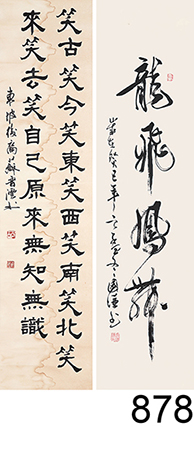 笑古笑今笑東笑西笑南笑北笑
來笑去笑自己原來無知無識
東坡後裔蘇
龍飛鳳舞
878